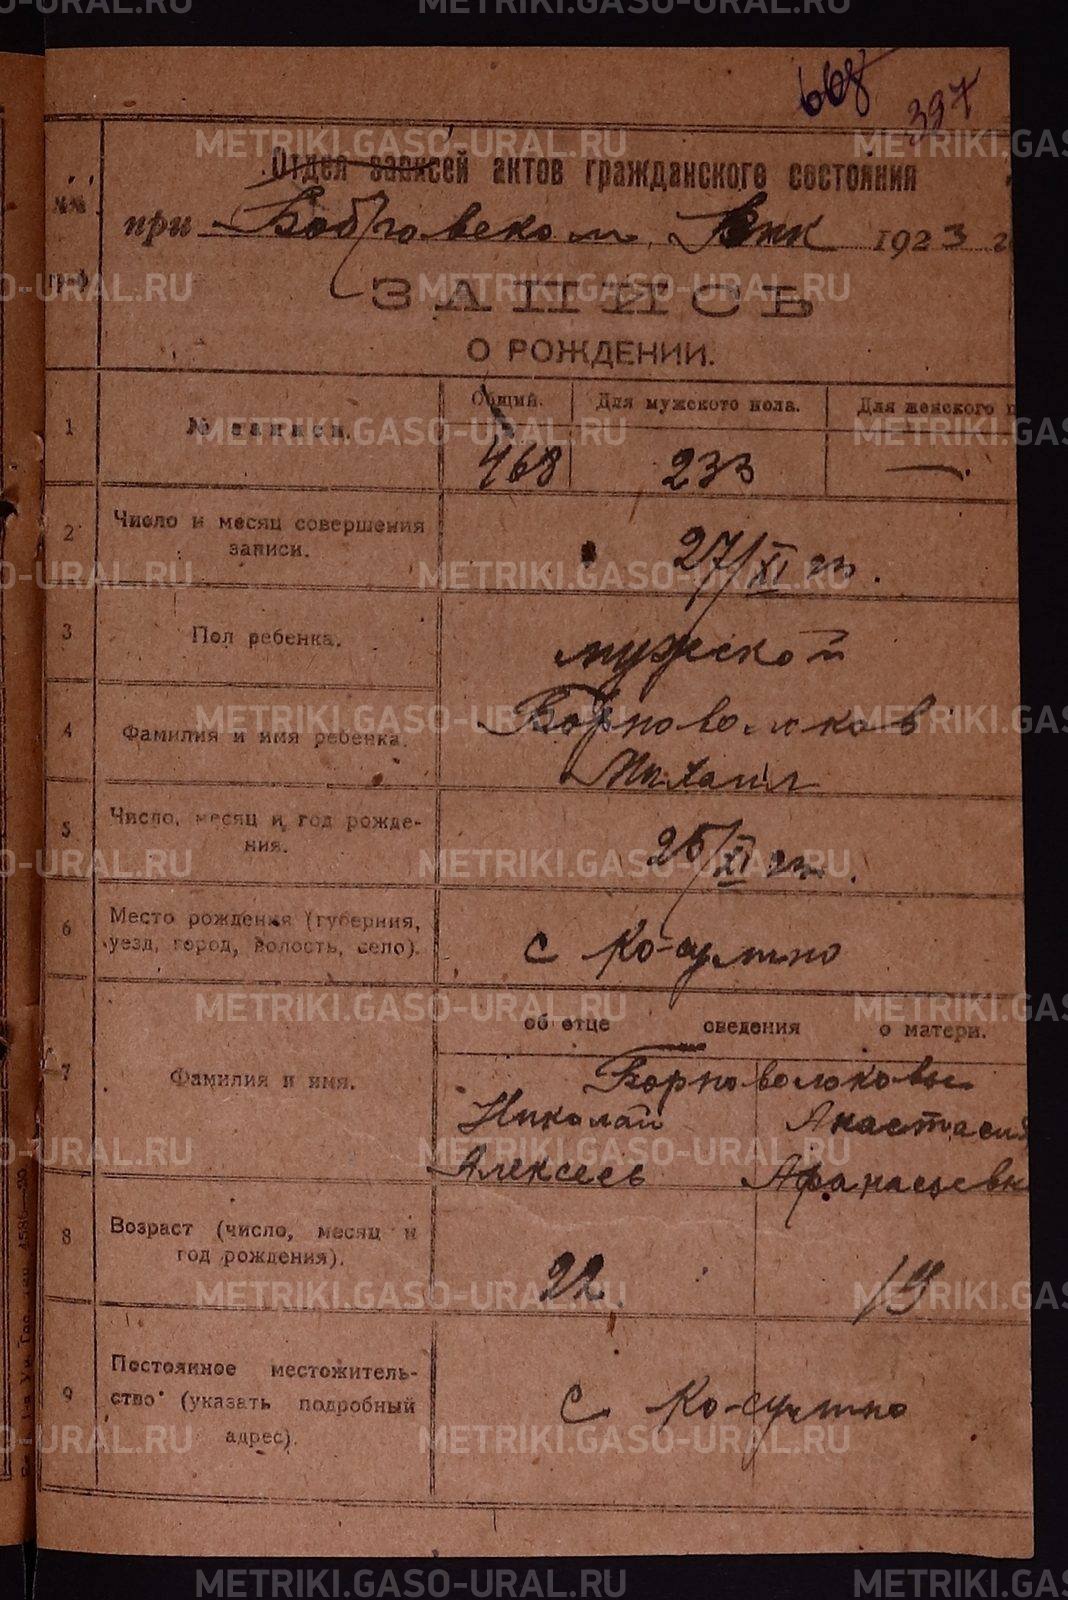 668 397
Отдел записей актов гражданского состояния
№№ граф.
при Бобровском Вик 1923 г
ЗАПИСЬ
О РОЖДЕНИИ.
1 № записи. Общий. Для мужского пола. Для женского п
468 233 —
2 Число и месяц совершения записи. 27/XI 23.
3 Пол ребенка. мужской
4 Фамилия и имя ребенка. Борноволоков
Михаил
5 Число, месяц и год рожде-
ния. 25/XI 23.
6 Место рождения (губерния,
уезд, город, волость, село). с
об отце сведения о матери.
7 Фамилия и имя. Борноволоковы
Николай Анастасия
Алексеев Афанасьевн
8 Возраст (число, месяц и
год рождения). 22 19
9 Постоянное местожитель-
ство (указать подробный
адрес). с
METRIKI.GASO-URAL.RU